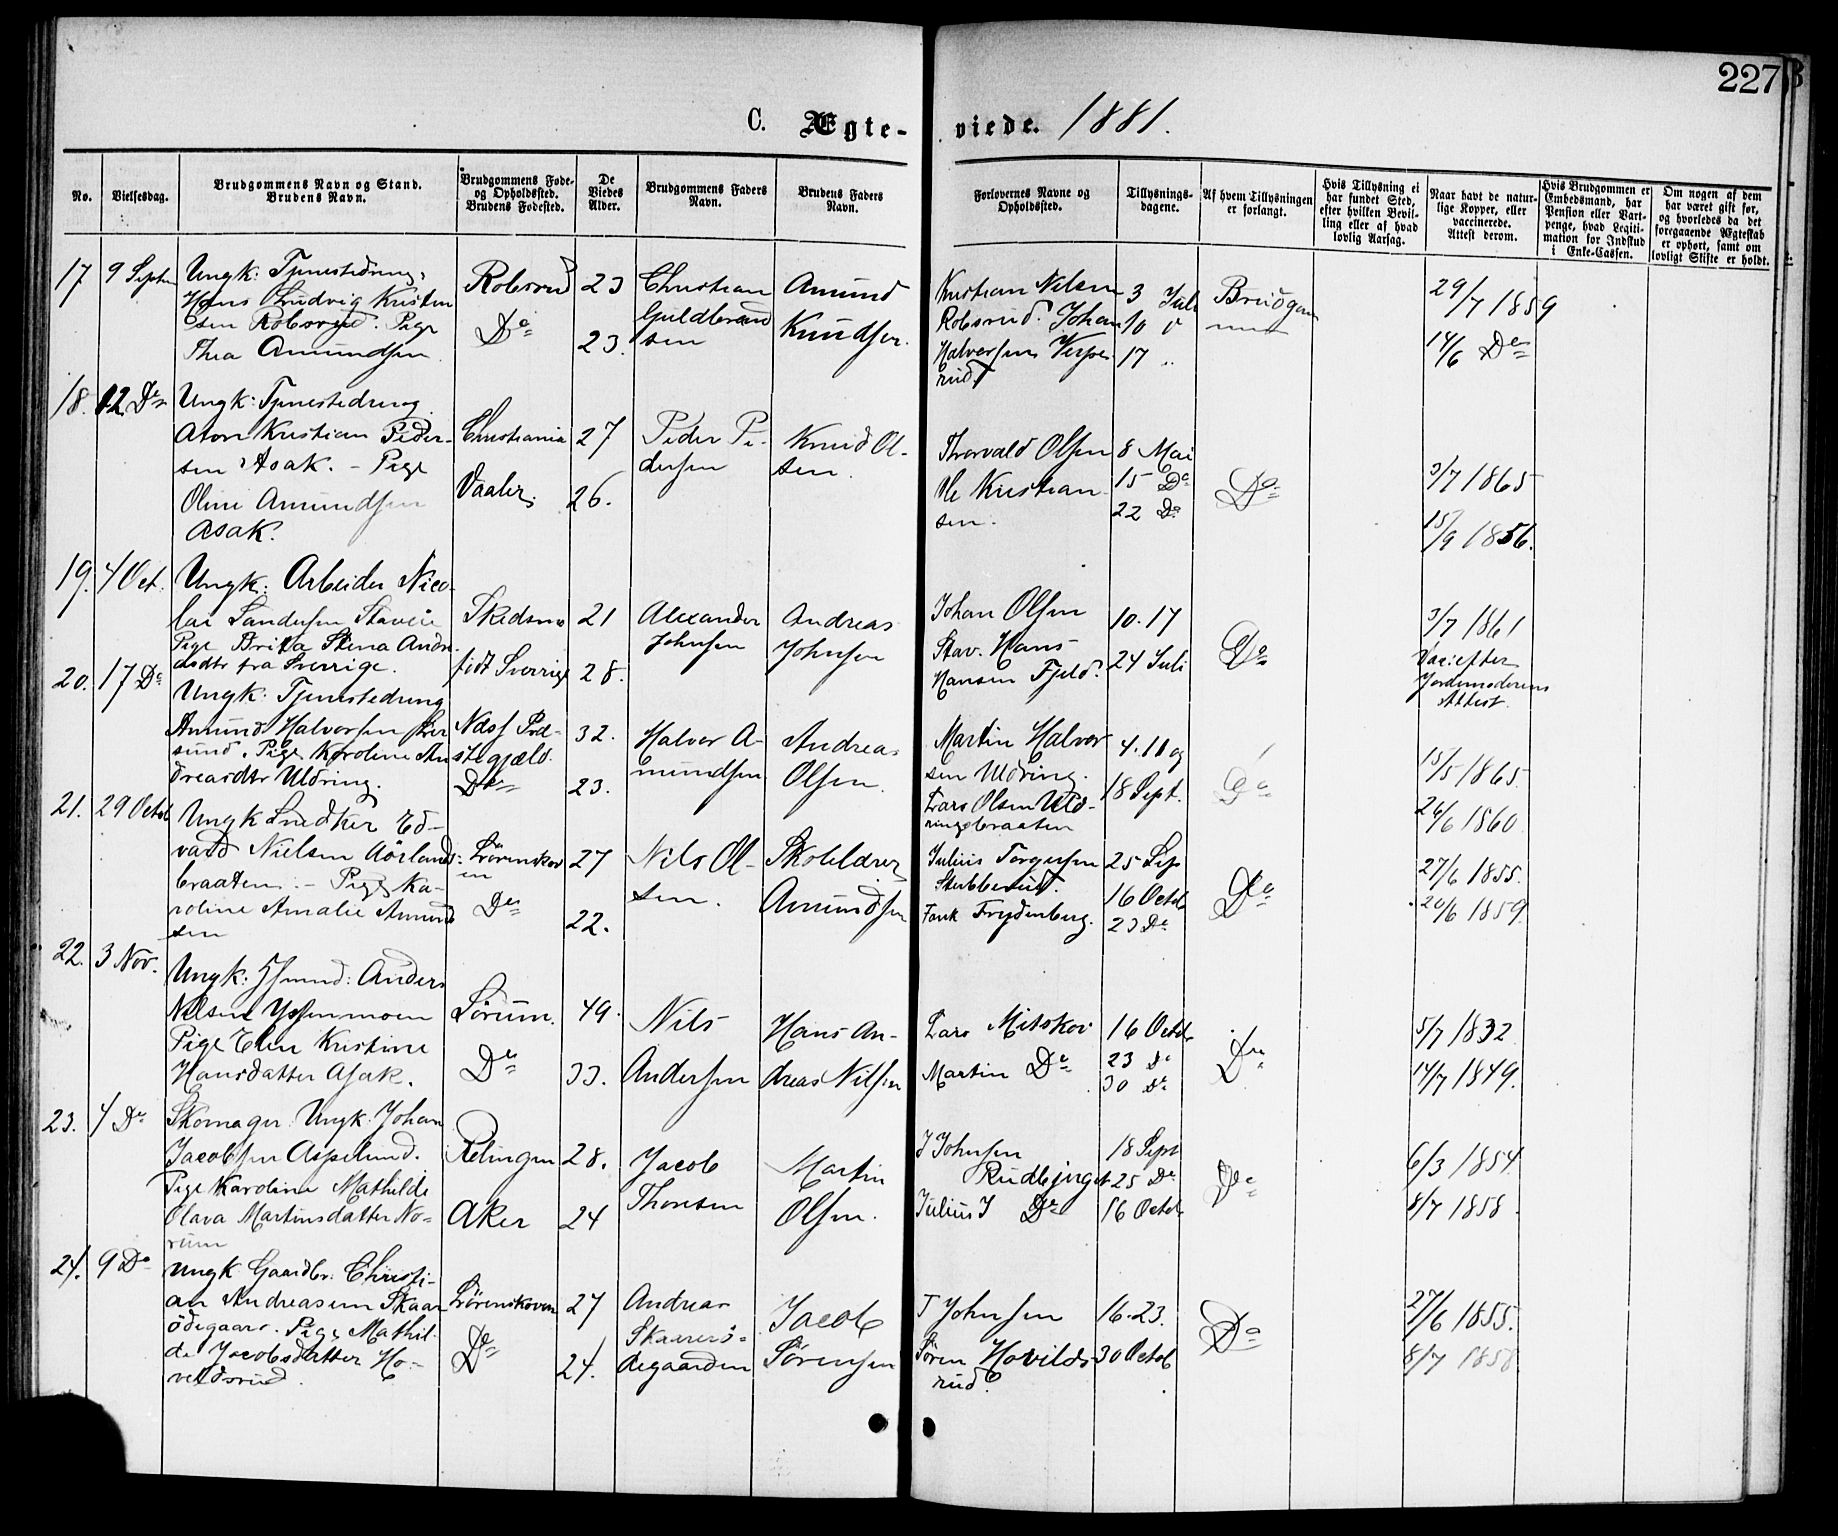 227
C. Ægte- viede. 1881.
No.
Vielsesdag.
Brudgommens Navn og Stand.
Brudens Navn.
Brudgommens Føde-
og Opholdssted.
Brudens Fødested.
De
Viedes
Alder.
Brudgommens Faders
Navn.
Brudens Faders
Navn.
Forlovernes Navne og
Opholdssted.
Tillysnings-
dagene.
Af hvem Tillysningen
er forlangt.
Hvis Tillysning ei
har fundet Sted,
efter hvilken Bevil-
ling eller af hvad
lovlig Aarsag.
Naar havt de natur-
lige Kopper, eller
vaccinerede.
Attest derom.
Hvis Brudgommen er
Embedsmand, har
Pension eller Vart-
penge, hvad Legiti-
mation for Indskud
i Enke-Cassen.
Om nogen af dem
har været gift før,
og hvorledes da det
foregaaende Ægteskab
er ophørt, samt om
lovligt Skifte er holdt.
17 9 Septr
Ungk: Tjenestedreng
Hans Ludvig Kristen
sen Robsrud. Pige
Thea Amundsen
Robsrud
Do
23
23.
Christian
Guldbrand
sen
Amund
Knudsen.
Kristian Nilsen
Robsrud. Johan
Halvorsen Verpe
rud
3 Juli
10 "
17 "
Brudgom
men
29/7 1859
14/6 Do
18. 12 Do
Ungk: Tjenestedreng
Aton Kristian Peder-
sen Asak. - Pige
Oline Amundsen
Asak.
Christiania
Vaaler.
27
26.
Peder Pe-
dersen
Knud Ol-
sen.
Thorvald Olsen
Ole Kristian
sen.
8 Mai
15 Do
22 Do
Do
3/7 1865
15/9 1856.
19. 4 Oct.
Ungk: Arbeider Nico-
lai Sandersen Staveie
Pige Brita Stina Andre
asdtr fra Sverrige.
Skedsmo
født Sverrige
21
28.
Alexander
Johnsen
Andreas
Johnsen
Johan Olsen
Stav. Hans
Hansen Fjeld.
10. 17
24 Juli
Do
3/7 1861
Vac: efter
Jordemoderens
Attest.
20. 17 Do
Ungk: Tjenestedreng
Amund Halvorsen
sund. Pige Karoline An
dreasdtr Uldring.
Præ-
stegjæld.
Do
32.
23.
Halvor A-
mundsen
Andreas
Olsen.
Martin Halvor
sen Uldring.
Lars Olsen Uld-
ringsbraaten
4. 11 og
18 Sept.
Do
15/5 1865.
26/6 1860
21. 29 Octob
Ungk Snedker Ed-
vard Nielsen Aarlands-
braaten. - Pige Ka-
roline Amalie Amund
sen
Lørenskov
en
Do
27
22.
Nils Ol-
sen.
Skolelærer
Amundsen
Julius Torgersen
Stubberud.
Frydenberg.
25 Sep
16 Octob
23 Do
Do
27/6 1855.
20/6 1859.
22. 3 Nov.
Ungk: Husmd: Anders
Nilsen
Pige Elen Kristine
Hansdatter Asak.
Sørum.
Do
49.
33.
Nils
Andersen
Hans An-
dreas Nilsen
Lars Mitskov
Martin Do
16 Octob
23 Do
30 Do
Do
5/7 1832
14/7 1849.
23. 4 Do
Skomager. Ungk. Johan
Jacobsen Aspelund.
Pige Karoline Mathilde
Olava Martinsdatter No-
rum
Relingen
Aker
28.
24
Jacob
Thoresen
Martin
Olsen.
J Johnsen
Rudbjerget
Julius J Do
18 Sept
25 Do
16 Octob
Do
6/3 1854.
8/7 1858.
24. 9 Do
Ungk Gaardbr: Christi-
an Andreasen Skaar
ødegaard. Pige Mathil-
de Jacobsdatter Ho-
veldsrud.
Lørenskoven
Do
27
24.
Andreas
Skaarerø-
degaarden
Jacob
Sørensen
T Johnsen
Søren Hovilds-
rud.
16. 23.
30 Octob
Do
27/6 1855.
8/7 1858